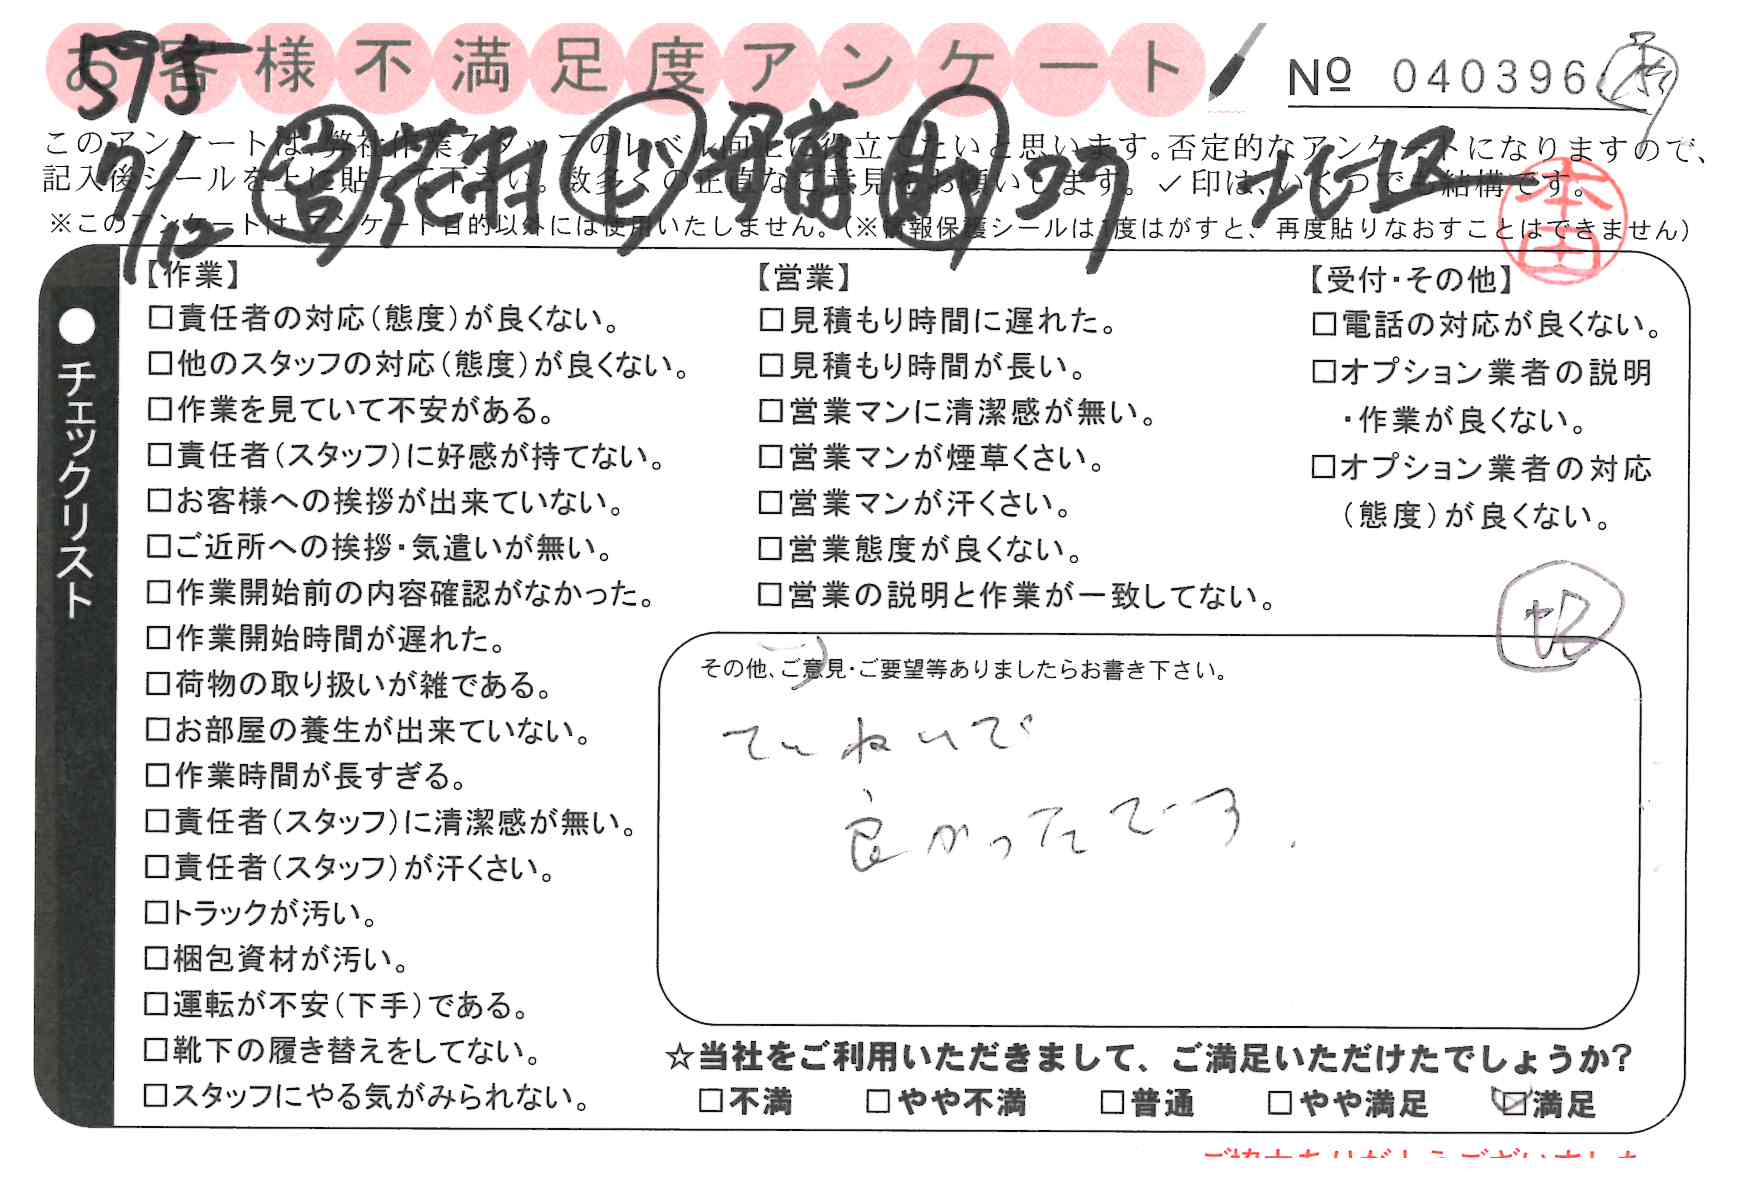 お客様不満足度アンケート
Nº 040396
このアンケートは、弊社作業スタッフのレベル向上に役立てたいと思います。否定的なアンケートになりますので、
記入後シールを上に貼って下さい。数多くの正直なご意見をお願いします。✓印は、いくつでも結構です。
※このアンケートは、アンケート目的以外には使用いたしません。（※情報保護シールは1度はがすと、再度貼りなおすことはできません）
9/12
北区
本田
●チェックリスト
【作業】
□責任者の対応（態度）が良くない。
□他のスタッフの対応（態度）が良くない。
□作業を見ていて不安がある。
□責任者（スタッフ）に好感が持てない。
□お客様への挨拶が出来ていない。
□ご近所への挨拶・気遣いが無い。
□作業開始前の内容確認がなかった。
□作業開始時間が遅れた。
□荷物の取り扱いが雑である。
□お部屋の養生が出来ていない。
□作業時間が長すぎる。
□責任者（スタッフ）に清潔感が無い。
□責任者（スタッフ）が汗くさい。
□トラックが汚い。
□梱包資材が汚い。
□運転が不安（下手）である。
□靴下の履き替えをしてない。
□スタッフにやる気がみられない。
【営業】
□見積もり時間に遅れた。
□見積もり時間が長い。
□営業マンに清潔感が無い。
□営業マンが煙草くさい。
□営業マンが汗くさい。
□営業態度が良くない。
□営業の説明と作業が一致してない。
【受付・その他】
□電話の対応が良くない。
□オプション業者の説明
・作業が良くない。
□オプション業者の対応
（態度）が良くない。
その他、ご意見・ご要望等ありましたらお書き下さい。
ていねいで
良かったです.
☆当社をご利用いただきまして、ご満足いただけたでしょうか?
□不満 □やや不満 □普通 □やや満足 ☑満足
ご協力ありがとうございました